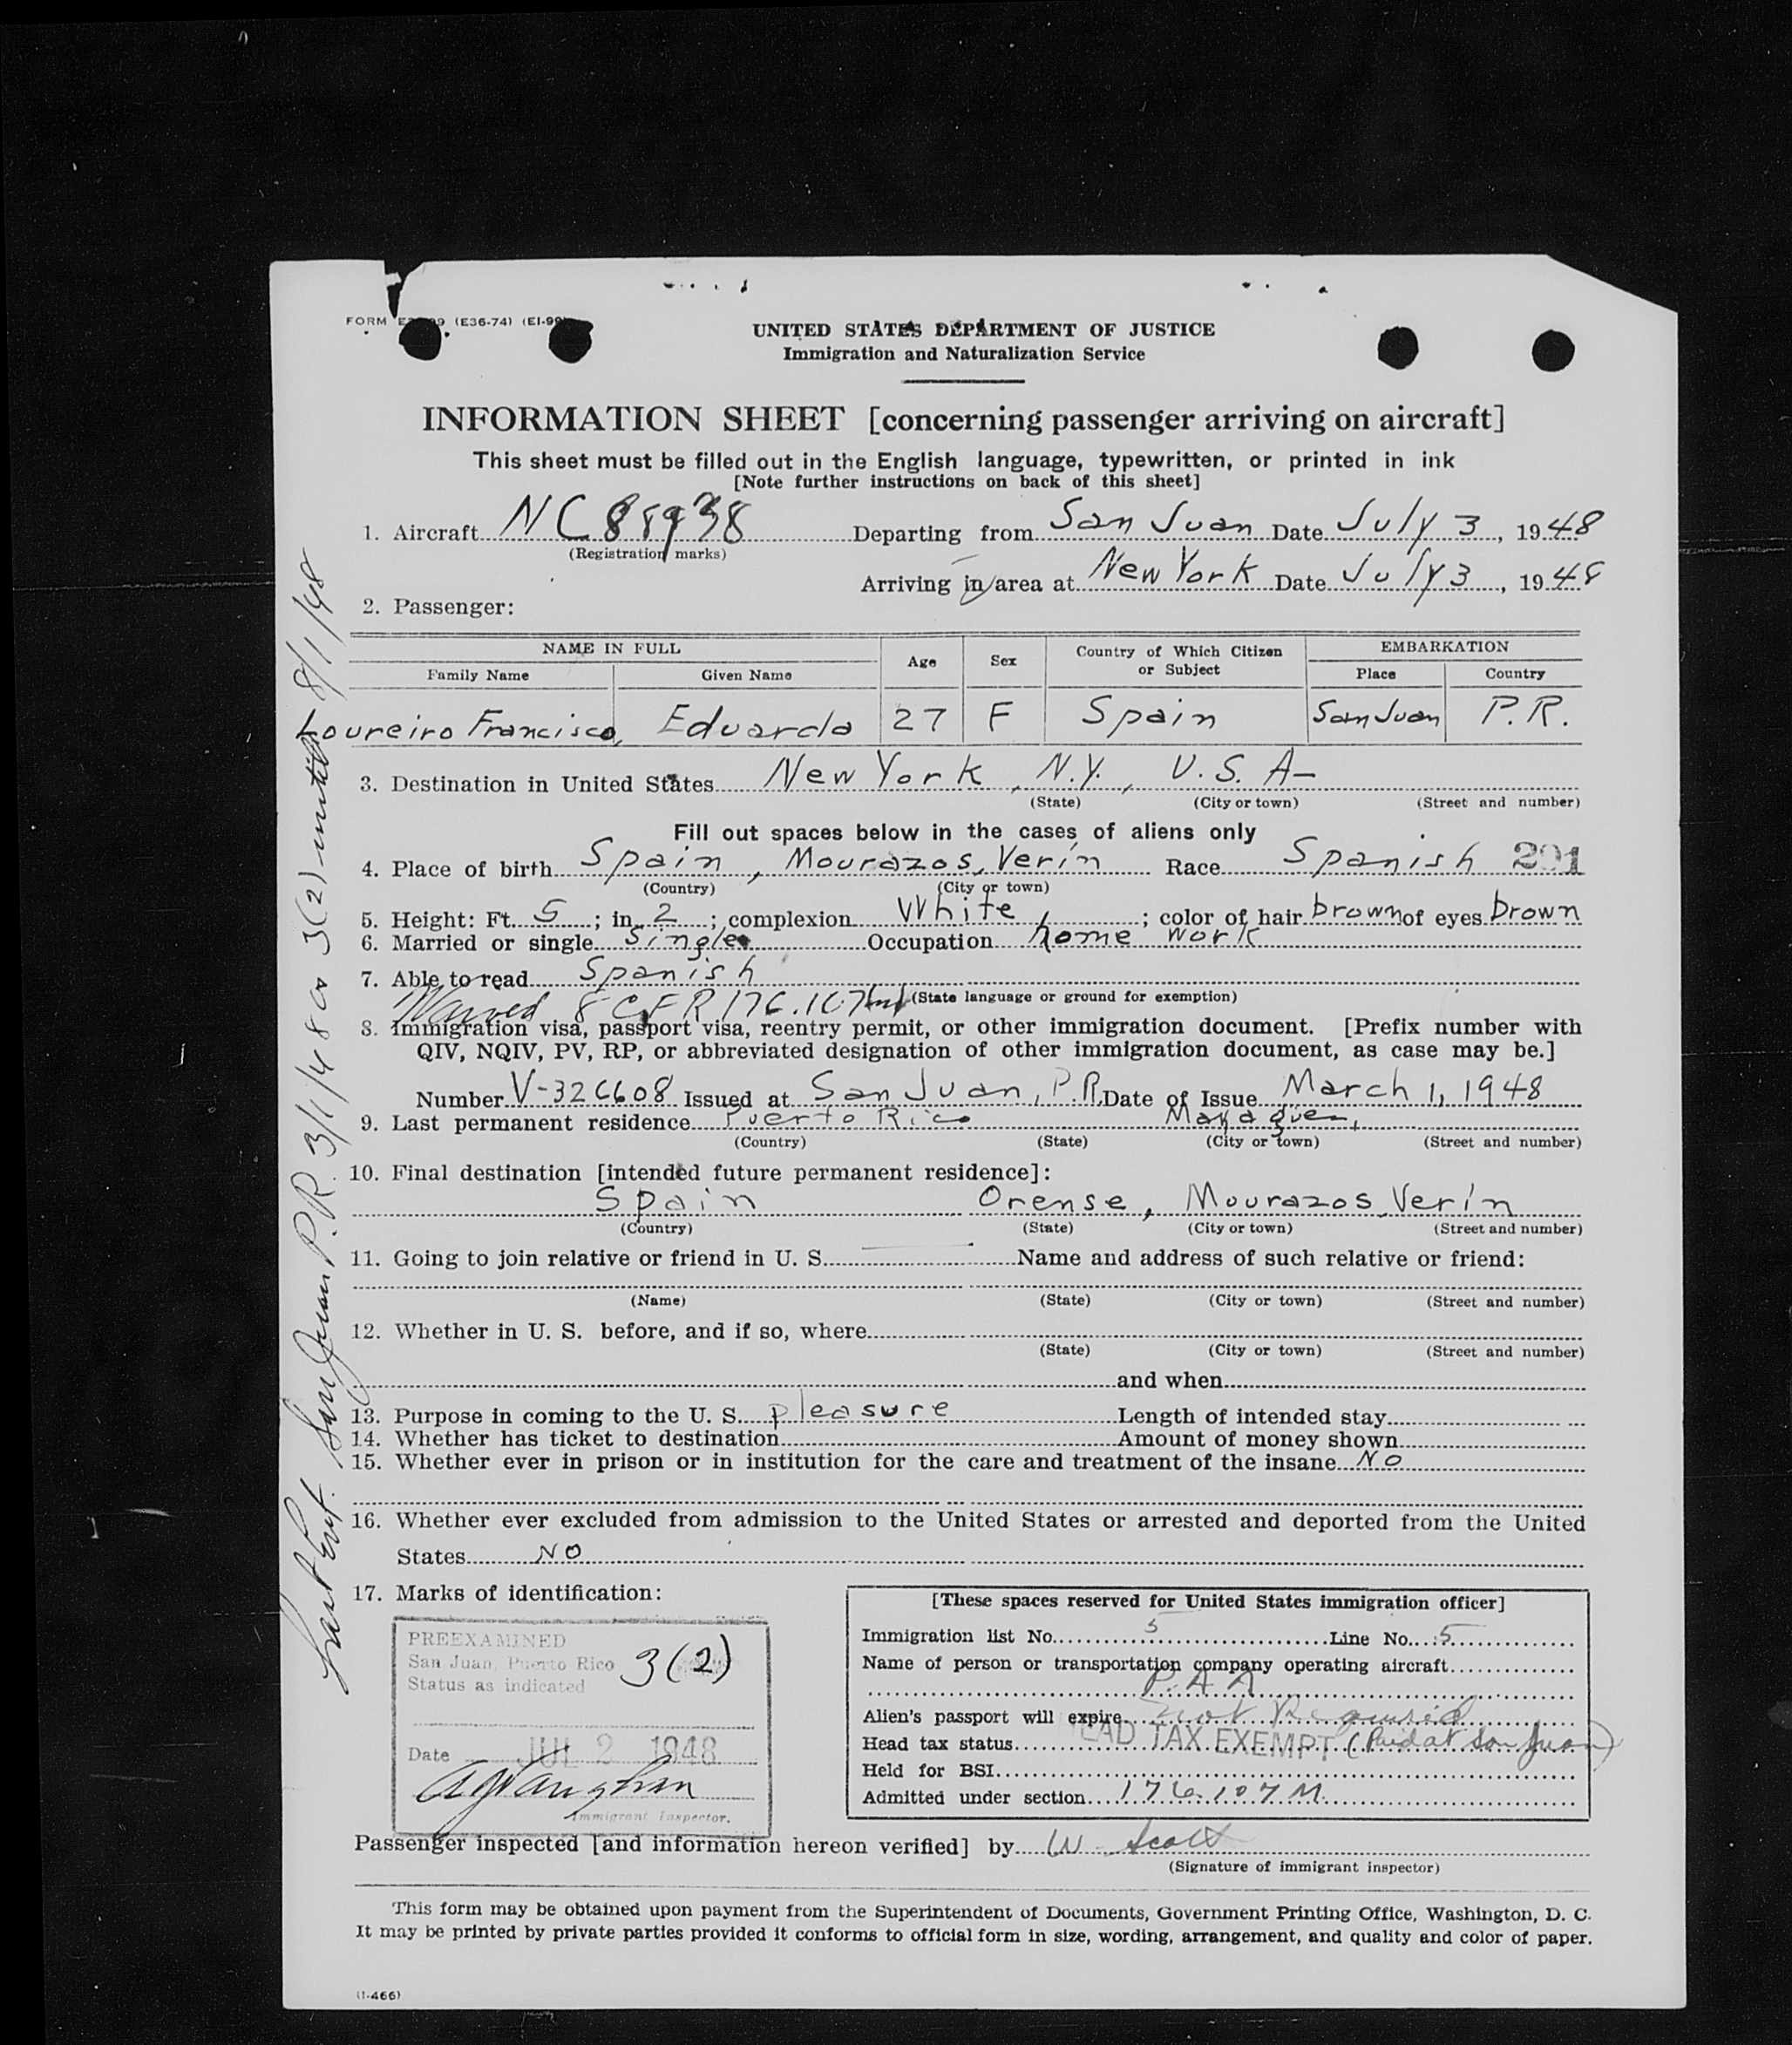 FORM (E36-74) (EI-99)
UNITED STATES DEPARTMENT OF JUSTICE
Immigration and Naturalization Service
INFORMATION SHEET [concerning passenger arriving on aircraft]
This sheet must be filled out in the English language, typewritten, or printed in ink
[Note further instructions on back of this sheet]
1. Aircraft NC88938 Departing from San Juan Date July 3, 1948
(Registration marks)
Arriving in area at New York Date July 3, 1948
2. Passenger:
NAME IN FULL Age Sex Country of Which Citizen or Subject EMBARKATION
Family Name Given Name Place Country
Loureiro Francisco, Eduarda 27 F Spain San Juan P.R.
3. Destination in United States New York, N.Y., U.S.A-
(State) (City or town) (Street and number)
Fill out spaces below in the cases of aliens only
4. Place of birth Spain, Mourazos, Verín Race Spanish 201
(Country) (City or town)
5. Height: Ft. 5; in. 2; complexion White; color of hair brown of eyes brown
6. Married or single single Occupation home work
7. Able to read Spanish
Waived 8 CFR 176.107 (State language or ground for exemption)
8. Immigration visa, passport visa, reentry permit, or other immigration document. [Prefix number with
QIV, NQIV, PV, RP, or abbreviated designation of other immigration document, as case may be.]
Number V-326608 Issued at San Juan, P.R. Date of Issue March 1, 1948
9. Last permanent residence Puerto Rico
(Country) (State) (City or town) (Street and number)
10. Final destination [intended future permanent residence]:
Spain Orense, Mourazos, Verín
(Country) (State) (City or town) (Street and number)
11. Going to join relative or friend in U. S. Name and address of such relative or friend:
(Name) (State) (City or town) (Street and number)
12. Whether in U. S. before, and if so, where
(State) (City or town) (Street and number)
and when
13. Purpose in coming to the U. S. pleasure Length of intended stay
14. Whether has ticket to destination Amount of money shown
15. Whether ever in prison or in institution for the care and treatment of the insane No
16. Whether ever excluded from admission to the United States or arrested and deported from the United
States NO
17. Marks of identification:
PREEXAMINED
San Juan, Puerto Rico 3(2)
Status as indicated
Date JUL 2 1948
Immigrant Inspector.
[These spaces reserved for United States immigration officer]
Immigration list No. 5 Line No. 5
Name of person or transportation company operating aircraft
P.A.A
Alien's passport will expire Not Required
Head tax status HEAD TAX EXEMPT (Paid at San Juan)
Held for BSI
Admitted under section 176.107 M
Passenger inspected [and information hereon verified] by W Scott
(Signature of immigrant inspector)
This form may be obtained upon payment from the Superintendent of Documents, Government Printing Office, Washington, D. C.
It may be printed by private parties provided it conforms to official form in size, wording, arrangement, and quality and color of paper.
(I-466)
Last Ent. San Juan P.R. 3/1/48 as 3(2) until 8/1/48